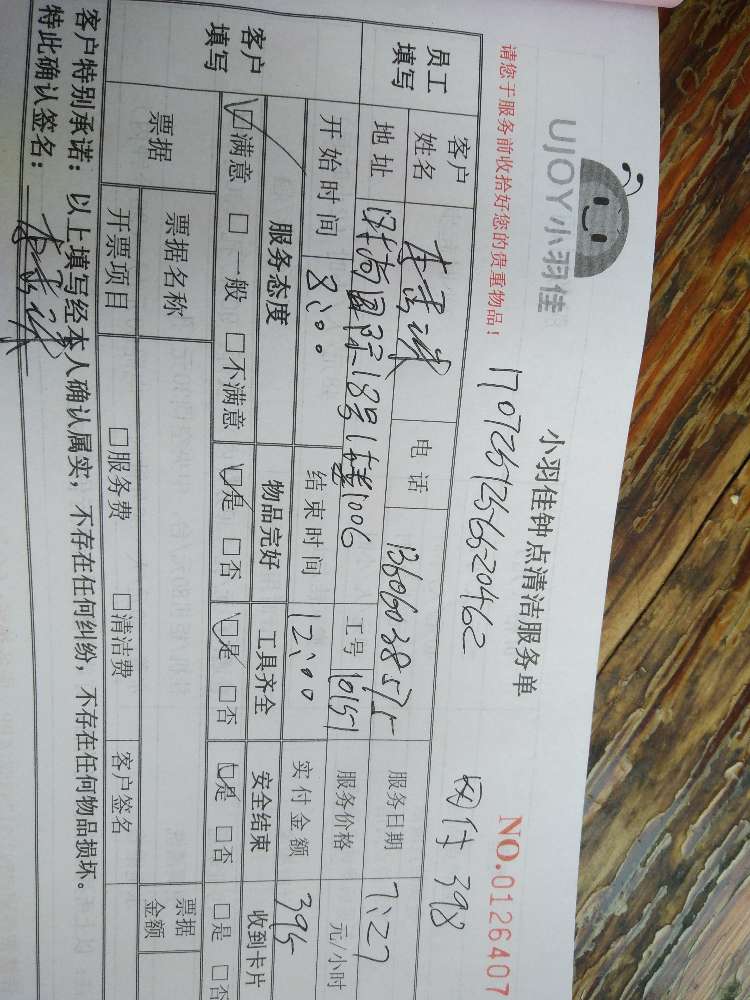 UJOY小羽佳
小羽佳钟点清洁服务单
请您于服务前收拾好您的贵重物品！
NO.0126407
1707251256620462
网付 398
员工填写
客户姓名
电话 13606038575
服务日期 7:27
地址 国际18号1楼1006
工号 10151
服务价格 元/小时
开始时间 8:00
结束时间 12:00
实付金额 395
客户填写
服务态度 物品完好 工具齐全 安全结束 收到卡片
☑满意 □一般 □不满意 ☑是 □否 ☑是 □否 ☑是 □否 □是 □否
票据
票据名称
票据金额
开票项目 □服务费 □清洁费 客户签名
客户特别承诺：以上填写经本人确认属实，不存在任何纠纷，不存在任何物品损坏。
特此确认签名：